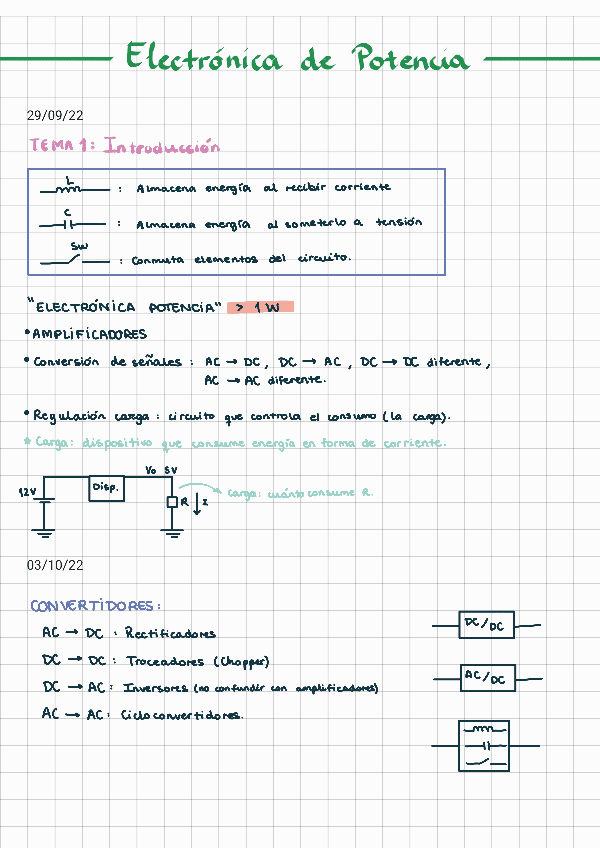 Electrónica de Potencia
29/09/22
TEMA 1: Introducción
L
: Almacena energía al recibir corriente
C
: Almacena energía al someterlo a tensión
SW
: Conmuta elementos del circuito.
"ELECTRÓNICA POTENCIA" > 1 W
• AMPLIFICADORES
• Conversión de señales : AC → DC, DC → AC, DC → DC diferente,
AC → AC diferente.
• Regulación carga : circuito que controla el consumo (la carga).
* Carga: dispositivo que consume energía en forma de corriente.
Vo 5V
12V
Disp.
R
I
Carga: cuánto consume R.
03/10/22
CONVERTIDORES:
AC → DC : Rectificadores
DC → DC : Troceadores (Chopper)
DC → AC : Inversores (no confundir con amplificadores)
AC → AC : Cicloconvertidores.
DC/DC
AC/DC